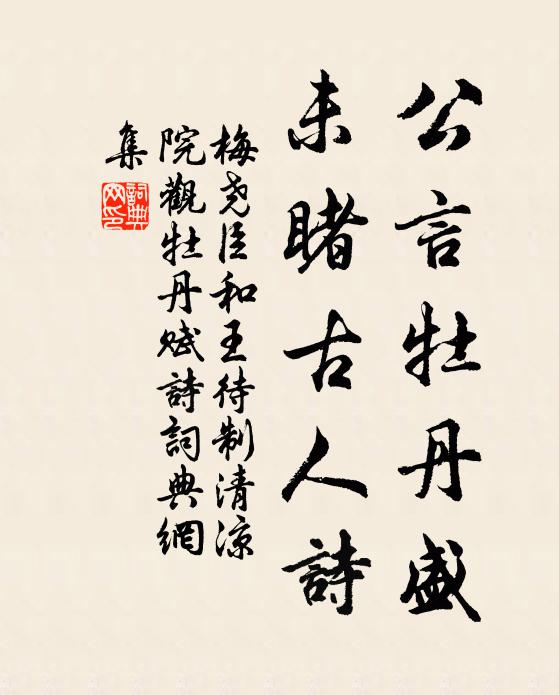 公言牡丹盛
未睹古人詩
梅尧臣和王待制清涼
院觀牡丹赋詩詞典網
集
詞典
网印